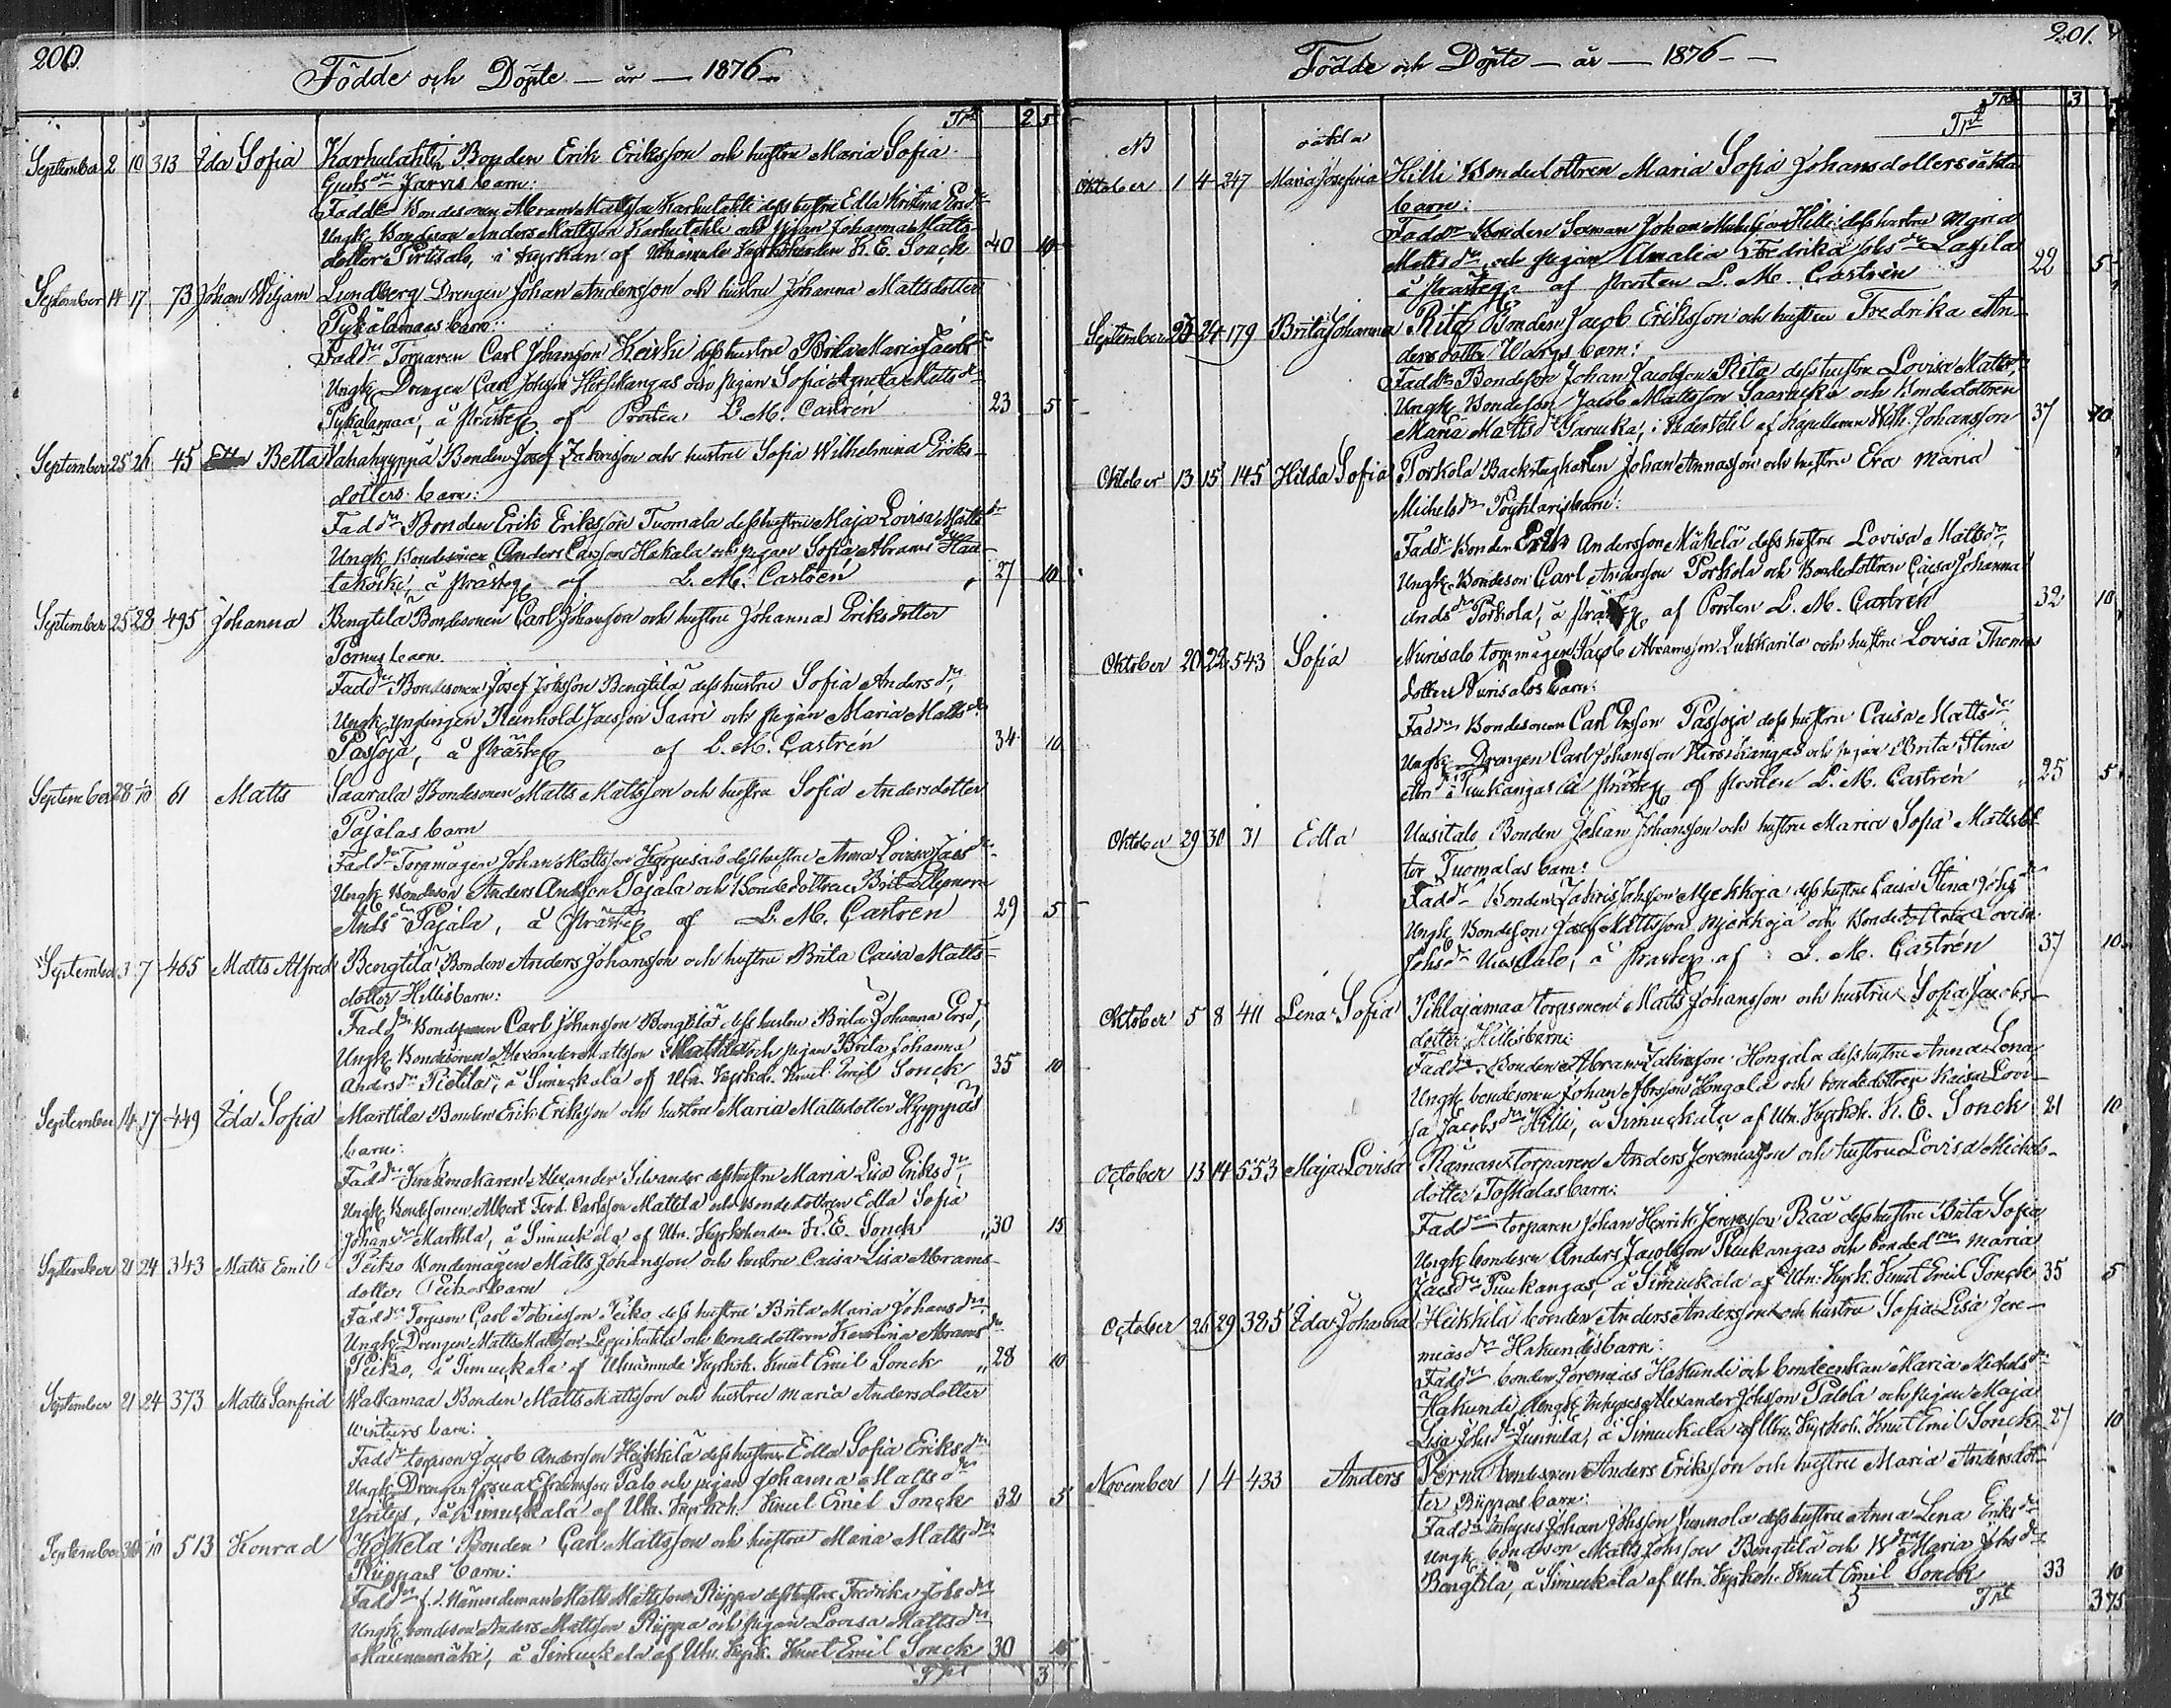 200.
Födde och Döpte — år — 1876 —
Trt 2 5
September 2 10 313 Ida Sofia Karhulahti Bonden Erik Eriksson och hustru Maria Sofia
Jarvis barn:
Faddr Bondesonen Abram Mattsson Karhulahti dess hustru Edla Kristina Ersdr
Ungk. Bondeson Anders Mattsson Karhulahti och pigan Johanna Matts-
dotter Pirttisalo, i kyrkan af Utnämnde Kyrkoherden K. E. Sonck 40 10
September 14 17 73 Johan Wiljam Lundberg Drengen Johan Andersson och hustru Johanna Mattsdotter
Pykälamaas barn:
Faddr Torparen Carl Johansson Keiski dess hustru Brita Maria Jacobsdr
Ungk. Drengen Carl Johsson Hirsikangas och pigan Sofia Agneta Mattsdr
Pykälamaa, å Prästeg. af Prosten L. M. Castrén 23 5
September 25 26 45 Betta Vahahyyppä Bonden Josef Zakrisson och hustru Sofia Wilhelmina Eriks-
dotters barn:
Faddr Bonden Erik Eriksson Tuomala dess hustru Maja Lovisa Mattsdr
Ungk. Bondesonen Anders Carsson Hakala och pigan Sofia Abramsdr Haa-
takoski, å Prästeg. af L. M. Castrén 27 10
September 25 28 495 Johanna Bengtila Bondesonen Carl Johansson och hustru Johanna Eriksdotter
Pernus barn.
Faddr Bondesonen Josef Johsson Bengtilä dess hustru Sofia Andersdr,
Ungk. Ynglingen Reinhold Jacsson Saari och pigan Maria Mattsdr
Passoja, å Prästeg. af L. M. Castrén 34 10
September 28 1/10 61 Matts Saarala Bondesonen Matts Mattsson och hustru Sofia Andersdotter
Pajalas barn
Faddr Torpmågen Johan Mattsson Karpusalo dess hustru Anna Lovisa Jacsdr
Ungk. Bondeson Anders Andsson Pajala och Bondedottren Brit. Eleonora
Andsdr Pajala, å Prästeg. af L. M. Castrén 29 5
September 3 7 465 Matts Alfred Bengtila Bonden Anders Johansson och hustru Brita Caisa Matts-
dotter Hillis barn:
Faddr Bondesonen Carl Johansson Bengtilä dess hustru Brita Johanna Ersdr,
Ungk. Bondesonen Alexander Mattsson Mattila och pigan Brita Johanna
Andersdr Pietilä, å Simuckala af Utn. Kyrkoh. Knut Emil Sonck 35 10
September 14 17 449 Ida Sofia Marttila Bonden Erik Eriksson och hustru Maria Mattsdotter Hyyppäs
barn:
Faddr Alexander Silvander dess hustru Maria Lisa Eriksdr,
Ungk. Bondesonen Albert Ferd. Carlsson Mattila och Bondedottren Edla Sofia
Johansdr Marttila, å Simuckala af Utn. Kyrkoherden K. E. Sonck 30 15
September 21 24 343 Matts Emil Peitzo Bondemågen Matts Johansson och hustru Caisa Lisa Abrams-
dotter Peitzos barn
Faddr Torpson Carl Tobiasson Peitzo dess hustru Brita Maria Johansdr
Ungk. Drengen Matts Mattsson och bondedottren Karolina Abramsdr
Peitzo, å Simuckala af Utnämnde Kyrkoh. Knut Emil Sonck 28 10
September 21 24 373 Matts Sanfrid Walkamaa Bonden Matts Mattsson och hustru Maria Andersdotter
Winturs barn:
Faddr torpson Jacob Andersson Heikkilä dess hustru Edla Sofia Eriksdr
Ungk. Drengen Josua Efraimsson Palo och pigan Johanna Mattsdr
å Simuckala af Utn. Kyrkoh. Knut Emil Sonck 32 5
September 30 1/10 513 Konrad Koskela Bonden Carl Mattsson och hustru Maria Mattsdr
Riippas barn:
Faddr f.d. Nämndeman Matts Mattsson Riippa dess hustru Fredrika Johsdr
Ungk. bondeson Anders Mattsson Riippa och pigan Lovisa Mattsdr
Maunumäki, å Simuckala af Utn. Kyrk. Knut Emil Sonck 30 15
Trt 3
201.
Födde och Döpte — år — 1876 —
Trt 3
NB oäkta Trt
Oktober 1 4 247 Maria Josefina Hilli Bondedottren Maria Sofia Johansdotters oäkta
barn:
Faddr Bonden Sexman Johan Mickelsson Hilli dess hustru Maria
Mattsdr och pigan Amalia Fredrika Johsdr Lassila
å Prästeg. af Prosten L. M. Castrén 22 5
September 23 24 179 Brita Johanna Rita Bonden Jacob Eriksson och hustru Fredrika An-
dersdotter Wargs barn:
Faddr Bondeson Johan Jacobsson Rita dess hustru Lovisa Mattsdr,
Ungk. Bondeson Jacob Mattsson Saarukka och Bondedottren
Maria Mattsdr Saarukka, i Vedervetil af Kapellanen Wilh. Johansson 37 10
Oktober 13 15 145 Hilda Sofia Porkola Backstugkarlen Johan Annasson och hustru Eva Maria
Michelsdr Pöyhtaris barn:
Faddr Bonden Erik Andersson Mäkelä dess hustru Lovisa Mattsdr,
Ungk. Bondeson Carl Andersson Porkola och Bondedottren Caisa Johanna
Andsdr Porkola, å Prästeg. af Prosten L. M. Castrén 32 10
Oktober 20 22 543 Sofia Nurisalo torpmågen Jacob Abramsson Lukkarila och hustru Lovisa Thomas
dotters Nurisalos barn:
Faddr Bondesonen Carl Ersson Passoja dess hustru Caisa Mattsdr
Ungk. Drengen Carl Johansson Hirsikangas och pigan Brita Stina
Puukangas å Prästeg. af Prosten L. M. Castrén 25 5
Oktober 29 30 31 Edla Uusitalo Bonden Johan Johansson och hustru Maria Sofia Mattsdot
ter Tuomalas barn:
Faddr Bonden Zakris Johsson Myekkoja dess hustru Caisa Stina Johsdr
Ungk. Bondeson Josef Mattsson Myekkoja och Bondedottren Lovisa
Johsdr Uusitalo, å Prästeg. af L. M. Castrén 37 10
Oktober 5 8 411 Lena Sofia Pihlajamaa torpsonen Matts Johansson och hustru Sofia Jacobs-
dotter Hillis barn:
Faddr Bonden Abram Zakrisson Hongala dess hustru Anna Lena,
Ungk. bondesonen Johan Abrsson Hongala och bondedottren Kaisa Lovi-
sa Jacobsdr Hilli, å Simuckala af Utn. Kyrkoh. K. E. Sonck 21 10
October 13 14 553 Maja Lovisa Råman torparen Anders Jeremiasson och hustru Lovisa Michels-
dotter Toskalas barn:
Faddr torparen Johan Henrik Jeremiasson Rää dess hustru Brita Sofia
Ungk. bondeson Anders Jacobsson Puukangas och bonded.n Maria
Jacsdr Puukangas, å Simuckala af Utn. Kyrk. Knut Emil Sonck 35 5
October 26 29 385 Ida Johanna Heikkilä bonden Anders Andersson och hustru Sofia Lisa Jere-
miasdr Hakundis barn:
Faddr bonden Jeremias Hakundi och bondeenkan Maria Michelsdr
Hakundi Ungk. Inhyses Alexander Johsson Palola och pigan Maja
Lisa Johsdr Junnila, å Simuckala af Utn. Kyrkoh. Knut Emil Sonck 27 10
November 1 4 433 Anders Pernu bondesonen Anders Eriksson och hustru Maria Andersdot-
ter Riippas barn:
Faddr Inhyses Johan Johsson Junnola dess hustru Anna Lena Eriksdr
Ungk. bondeson Matts Johsson Bengtilä och Maria Johsdr
Bengtila, å Simuckala af Utn. Kyrkoh. Knut Emil Sonck 33 10
3 Trt 375